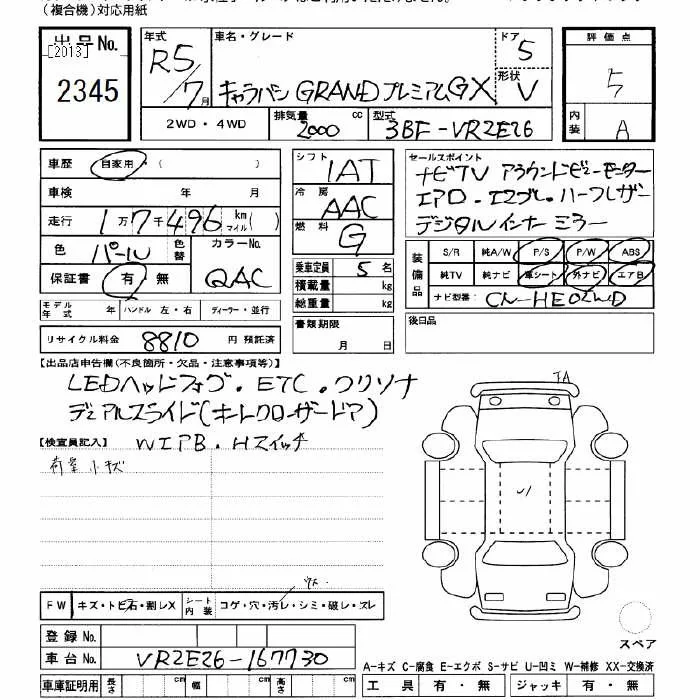 (複合機)対応用紙
出品No.
[2013]
2345
年式 R5/7月
車名・グレード キャラバン GRANDプレミアムGX
ドア 5
形状 V
2WD・4WD
排気量 2000 cc
型式 3BF-VR2E26
評価点 5
内装 A
車歴 自家用・( )
車検 年 月
走行 1万7千496km マイル( )
色 パール 色替 カラーNo. QAC
保証書 有・無
モデル年式 年 ハンドル 左・右 ディーラー・並行
リサイクル料金 8810 円 預託済
シフト IAT
冷房 AAC
燃料 G
乗車定員 5 名
積載量 kg
総重量 kg
書類期限 月 日
セールスポイント
ナビTV アラウンドビューモーター
エアロ・エマブレ・ハーフレザー
デジタルインナーミラー
装備品 S/R 純A/W P/S P/W ABS
純TV 純ナビ 革シート 外ナビ エアB
ナビ型番
後日品
【出品店申告欄(不良箇所・欠品・注意事項等)】
LEDヘッドフォグ・ETC・クリソナ
デュアルスライド(キレクローザードア)
WエアB・Hスイッチ
【検査員記入】
荷室小キズ
FW キズ・トビ石・割レX シート内装 コゲ・穴・汚レ・シミ・破レ・スレ
登録No.
車台No. VR2E26-167730
車庫証明用 長さ cm 幅 cm 高さ cm
スペア
A-キズ C-腐食 E-エクボ S-サビ U-凹ミ W-補修 XX-交換済
工具 有・無 ジャッキ 有・無